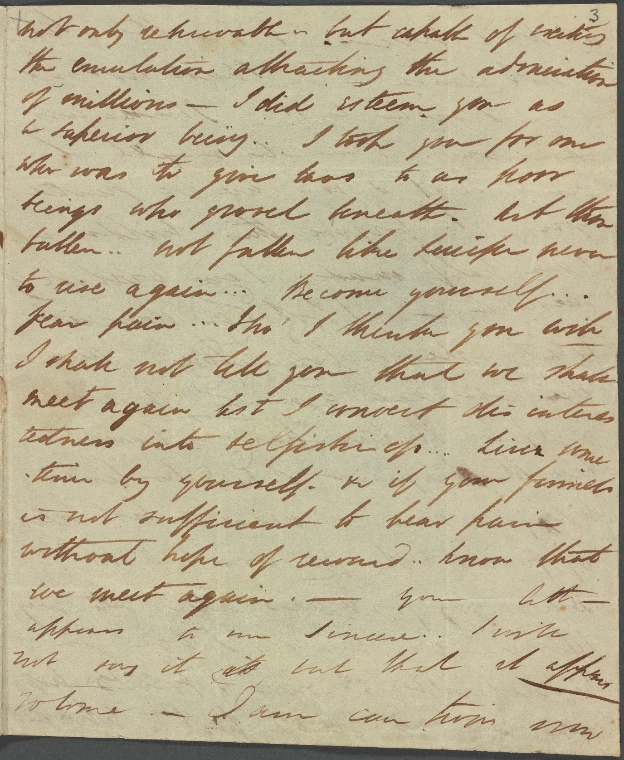 3
not only retrievable – but capable of exciting
the emulation attracting the admiration
of millions – I did esteem you as
a superior being.. I took you for one
who was to give laws to us poor
beings who grovel beneath. Art thou
fallen.. not fallen like Lucifer never
to rise again... Become yourself...
fear pain... Tho' I think you will
I shall not tell you that we shall
meet again lest I convert disinteres
tedness into selfishness... Live some
time by yourself. & if your firmness
is not sufficient to bear pain
without hope of reward.. know that
we meet again. — your lett –
appears to me sincere.. I will
not say it is but that it appears
to me – I am now